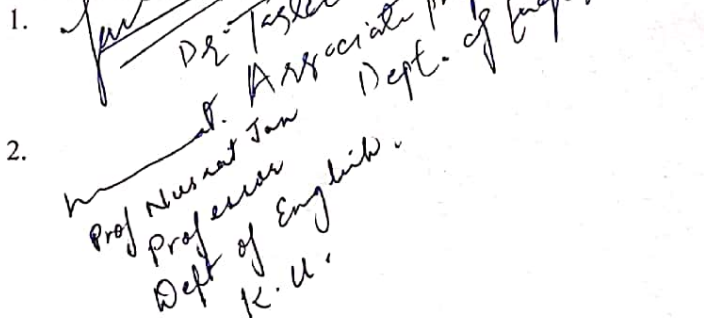 1.
Dr. Tasle
Associate P
Dept. of Eng
2.
Prof Nusrat Jan
Professor
Deptt of English.
K.U.